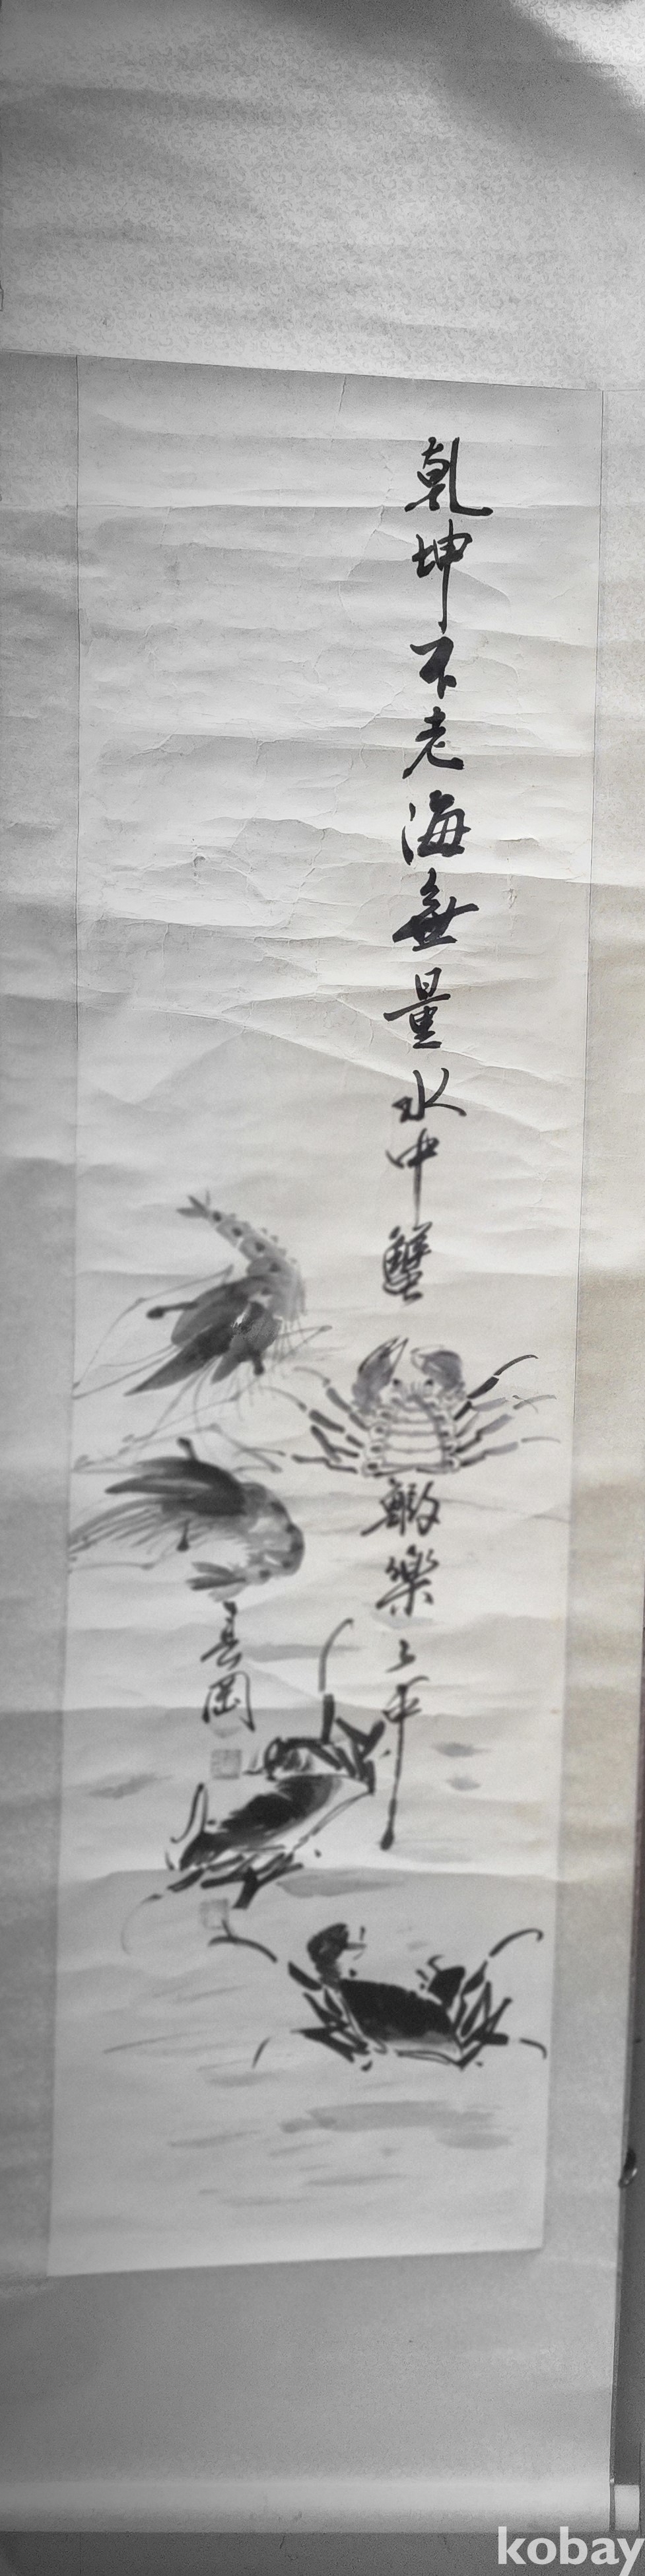 乾坤不老海無量水中蟹鰕樂太平
春岡
kobay